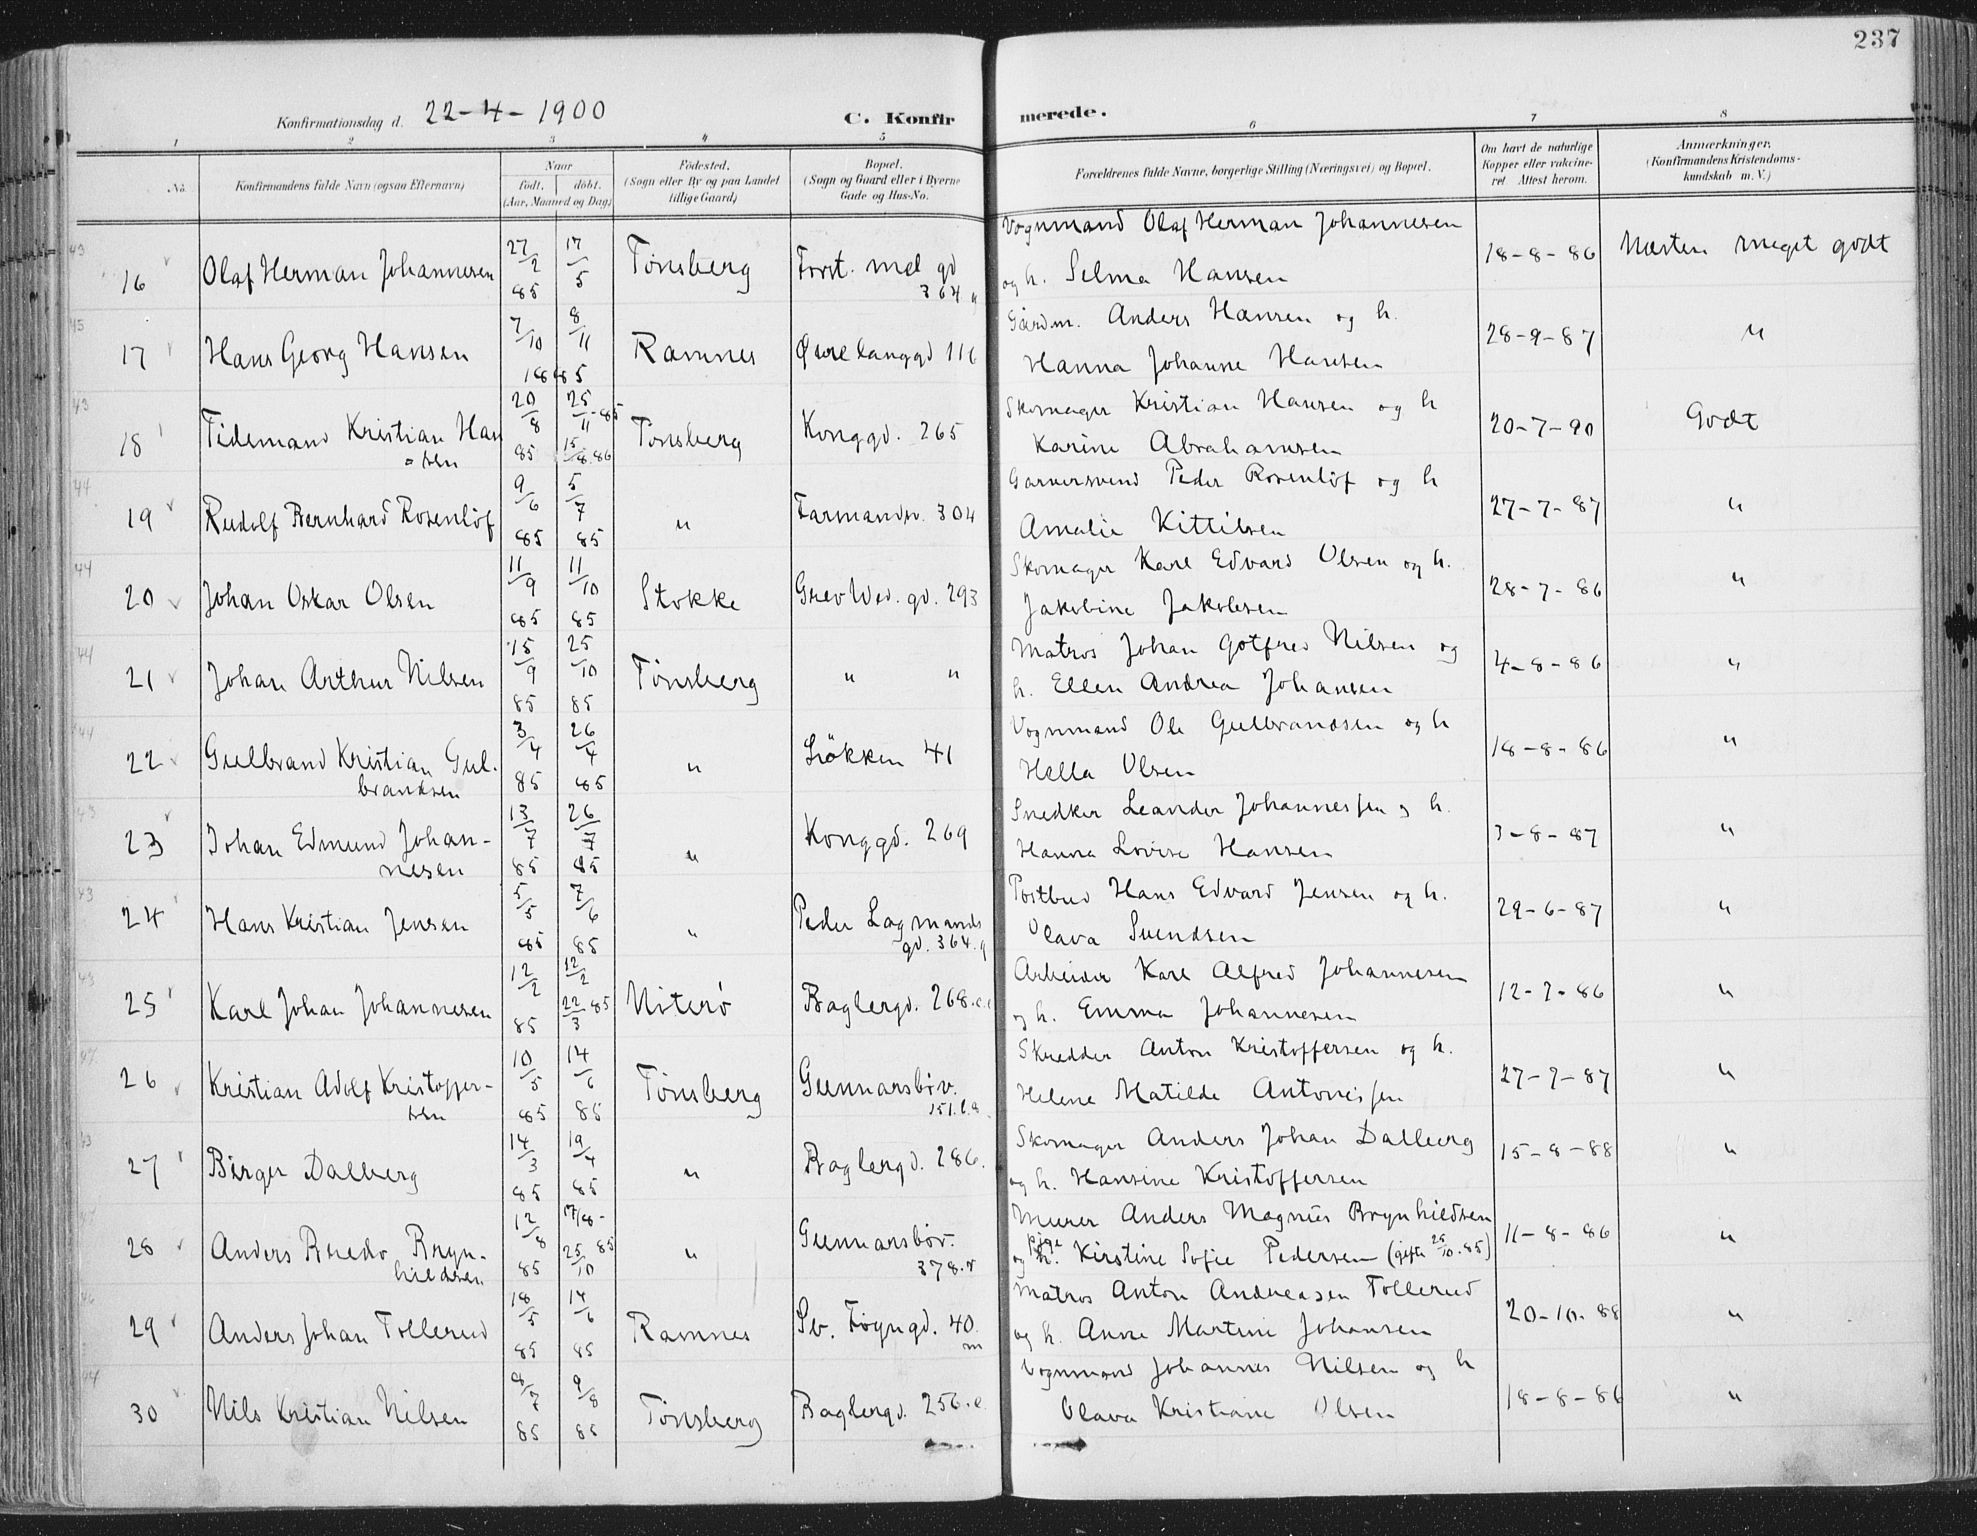 237
Konfirmationsdag d. 22-4-1900
C. Konfirmerede.
1 2 3 4 5 6 7 8
No. Konfirmandens fulde Navn (ogsaa Efternavn) Naar født, døbt. (Aar, Maaned og Dag) Fødested. (Sogn eller By og paa Landet tillige Gaard) Bopæl. (Sogn og Gaard eller i Byerne Gade og Hus-No. Forældrenes fulde Navne, borgerlige Stilling (Næringsvei) og Bopæl. Om havt de naturlige Kopper eller vakcineret. Attest herom. Anmærkninger, (Konfirmandens Kristendomskundskab m. V.)
43 16 Olaf Herman Johannesen 27/2 85 17/5 Tønsberg 364 Vognmand Olaf Herman Johannesen og h. Selma Hansen 18-8-86 Næsten meget godt
45 17 Hans Georg Hansen 7/10 8/11 1885 Ramnes Øvre langgd 116 Gårdm. Anders Hansen og h. Hanna Johanne Hansen 28-9-87 "
43 18 Tidemand Kristian Hansen 20/8 85 25/11-85 15/8.86 Tønsberg Konggd. 265 Skomager Kristian Hansen og h Karine Abrahamsen 20-7-90 Godt
44 19 Rudolf Bernhard Rosenlöf 9/6 85 5/7 85 " Farmandsv. 304 Garversvend Peder Rosenlöf og h Amalie Kittilsen 27-7-87 "
44 20 Johan Oskar Olsen 11/9 85 11/10 85 Stokke Grev Wed. gd. 293 Skomager Karl Edvard Olsen og h. Jakobine Jakobsen 28-7-86 "
44 21 Johan Arthur Nilsen 15/9 85 25/10 85 Tønsberg " " Matros Johan Gotfred Nilsen og h. Ellen Andrea Johansen 4-8-86 "
44 22 Gulbrand Kristian Gulbrandsen 3/4 85 26/4 85 " Løkken 41 Vognmand Ole Gulbrandsen og h Hella Olsen 18-8-86 "
43 23 Johan Edmund Johannesen 13/7 85 26/7 85 " Konggd. 269 Snedker Leander Johannessen og h. Hanna Lovise Hansen 3-8-87 "
43 24 Hans Kristian Jensen 5/5 85 7/6 85 " Peder Lagmands gd. 364. q Postbud Hans Edvard Jensen og h. Olava Svendsen 29-6-87 "
43 25 Karl Johan Johannesen 12/2 85 12/2 22/3 85 Nøterø Baglergd. 268. Arbeider Karl Alfred Johannesen og h. Emma Johannesen 12-7-86 "
26 Kristian Adolf Kristoffersen 10/5 85 14/6 85 Tønsberg Gunnarsbøv. 151. Skredder Anton Kristoffersen og h. Helene Matilde Antonissen 27-7-87 "
43 27 Birger Dalberg 14/3 85 19/4 85 " Baglergd. 286. Skomager Anders Johan Dalberg og h. Hansine Kristoffersen 15-8-88 "
28 Anders Bredo Brynhildsen 12/8 85 17/8- 25/10 85 " Gunnarsbøv. 378. r Murer Anders Magnus Brynhildsen og pige Kirstine Sofie Pedersen (gifte 25/10.85) 11-8-86 "
46 29 Anders Johan Tollerud 18/5 85 14/6 85 Ramnes Sv. Føyngd. 40. m Matros Anton Andreasen Tollerud og h. Anne Martine Johansen 20-10-88 "
44 30 Nils Kristian Nilsen 8/7 85 9/8 85 Tønsberg Baglergd. 256.e Vognmand Johannes Nilsen og h Olava Kristiane Olsen 18-8-86 "